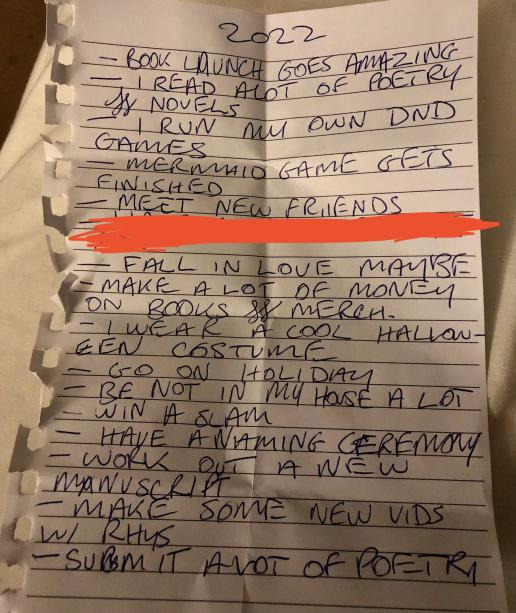 2022
- BOOK LAUNCH GOES AMAZING
- I READ ALOT OF POETRY
& NOVELS
- I RUN MY OWN DND
GAMES
- MERMAID GAME GETS
FINISHED
- MEET NEW FRIIENDS
- FALL IN LOVE MAYBE
- MAKE A LOT OF MONEY
ON BOOKS & MERCH.
- I WEAR A COOL HALLOW-
EEN COSTUME
- GO ON HOLIDAY
- BE NOT IN MY HOSE A LOT
- WIN A SLAM
- HAVE A NAMING CEREMONY
- WORK OUT A NEW
MANUSCRIPT
- MAKE SOME NEW VIDS
W/ RHYS
- SUBMIT ALOT OF POETRY